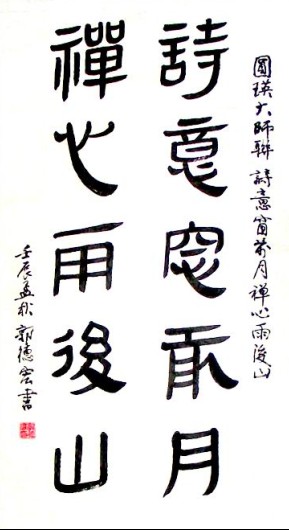 圓瑛大師聯 詩意窗前月禪心雨後山
詩意窗前月
禪心雨後山
壬辰孟秋 郭德宏書